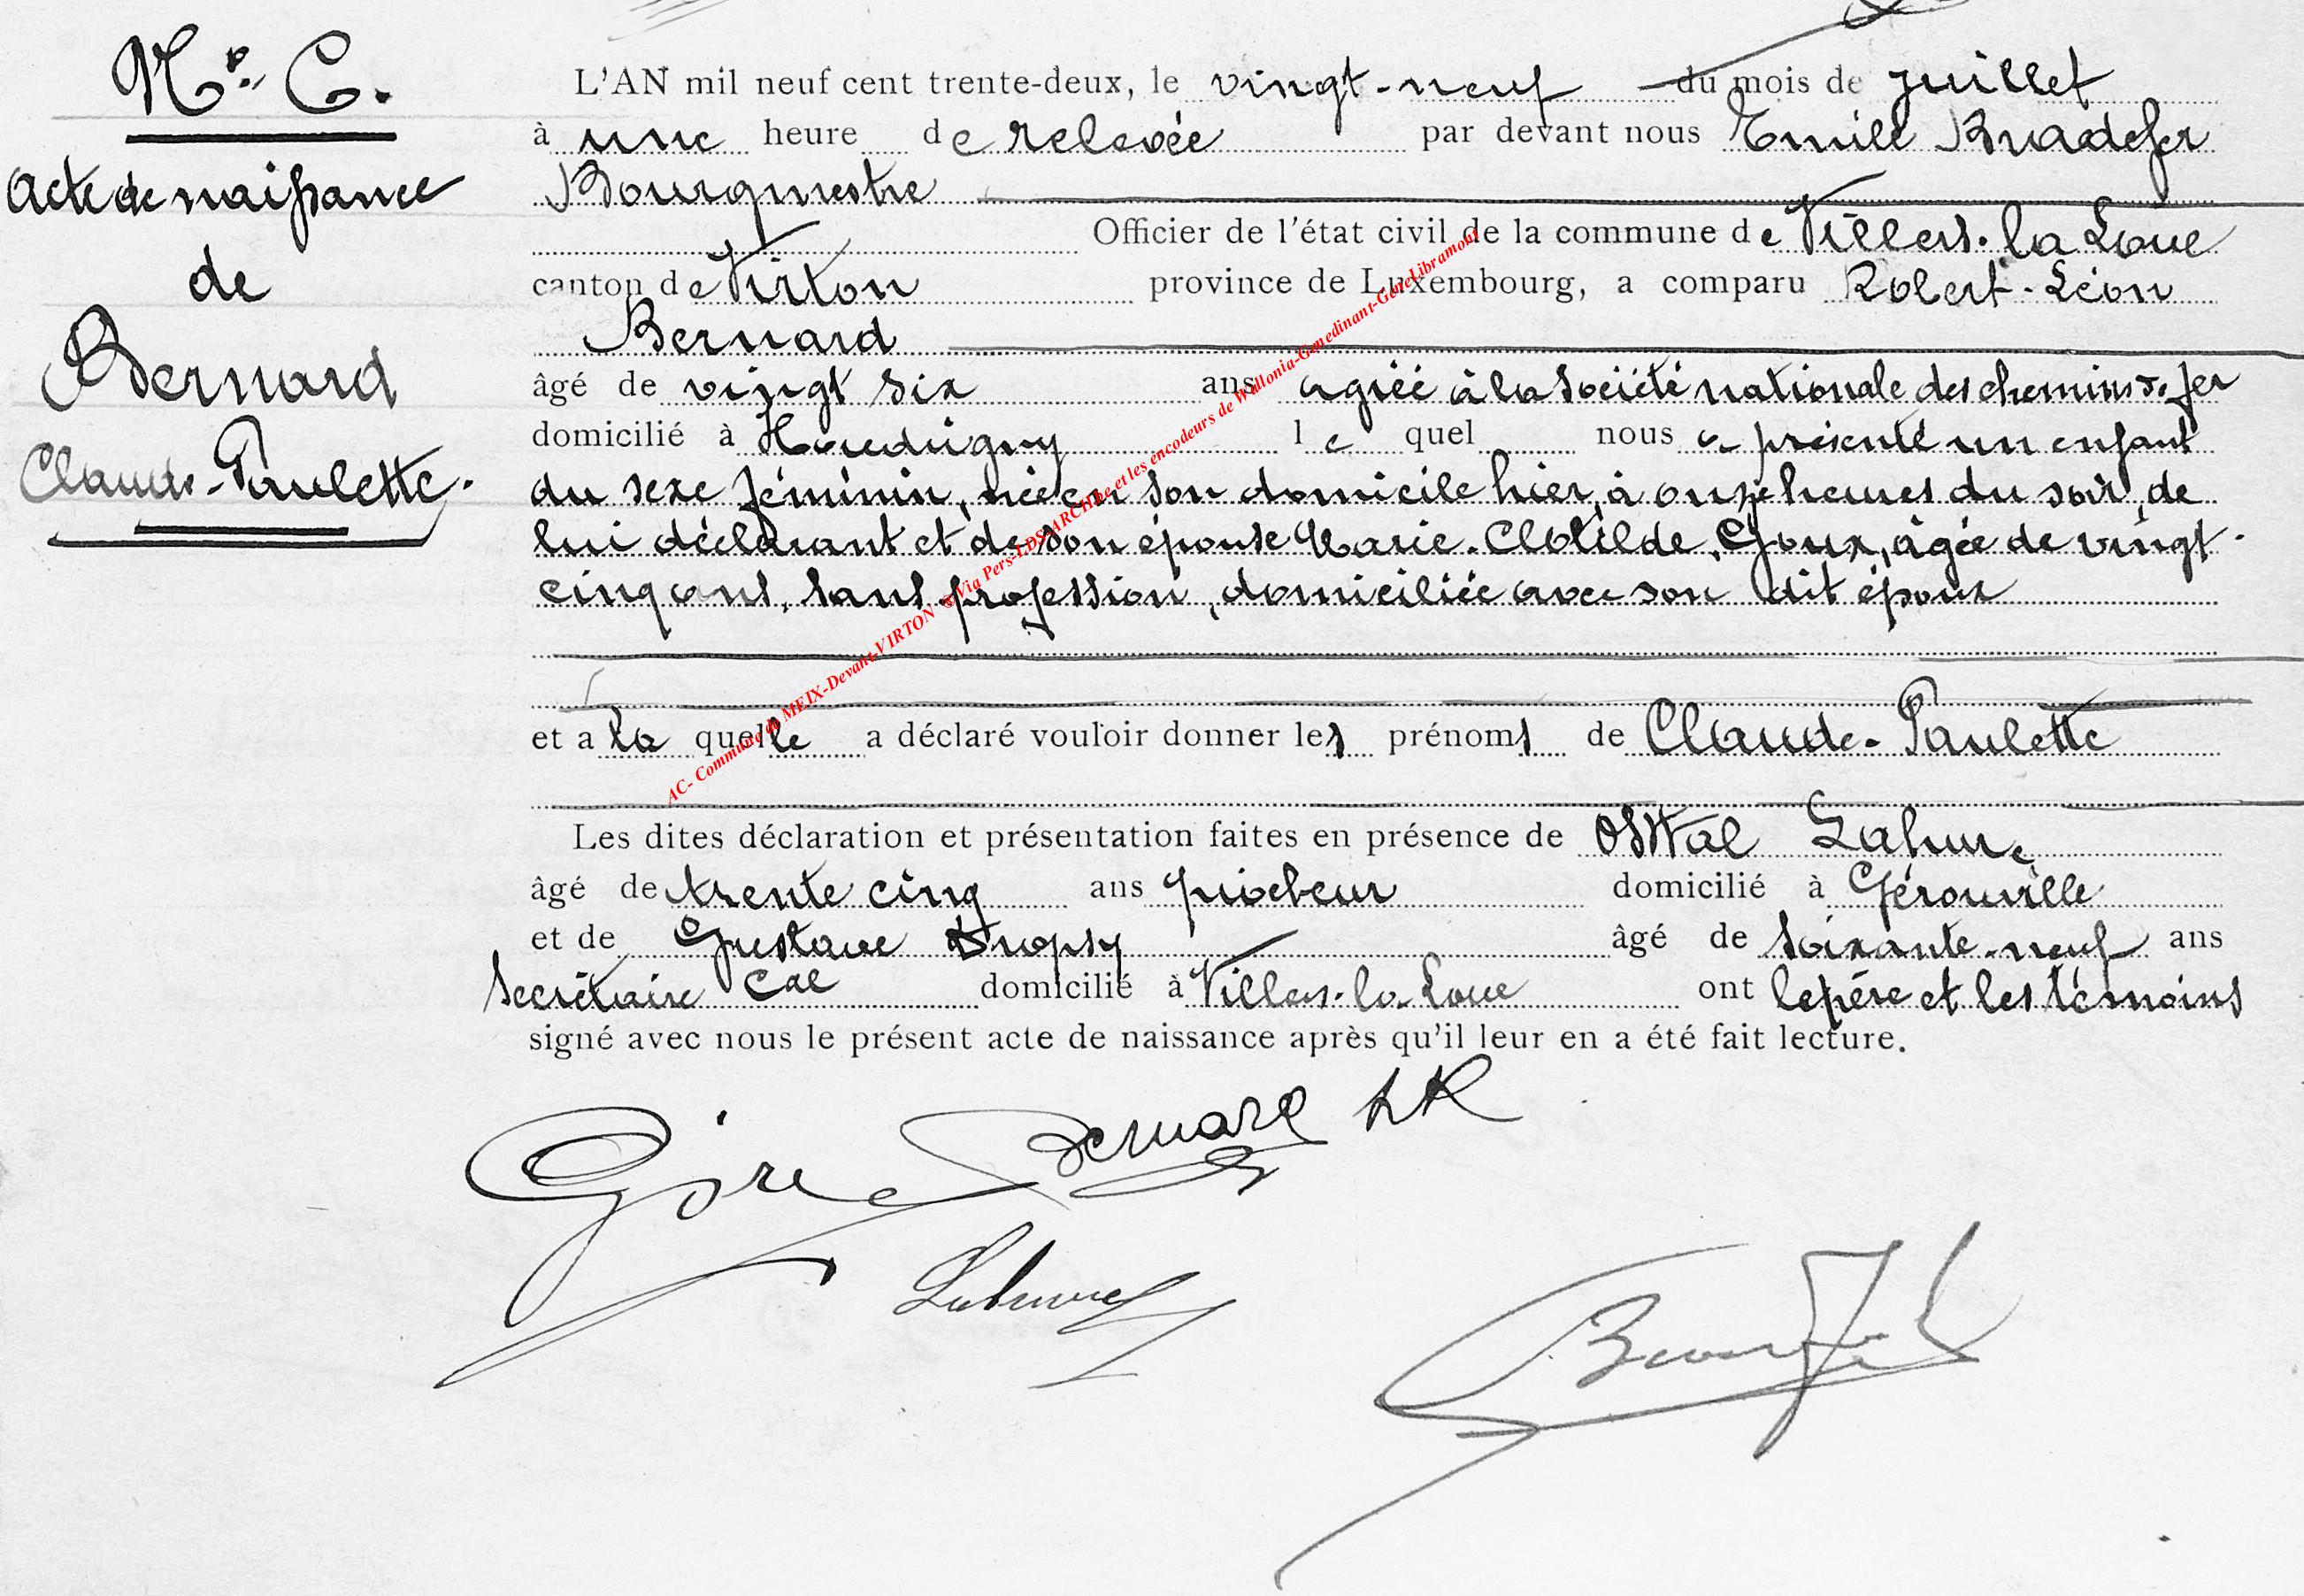 N° 6.
Acte de naissance
de
Bernard
Claude-Paulette.
L'AN mil neuf cent trente-deux, le vingt-neuf du mois de juillet
à une heure de relevée par devant nous Emile
Bourgmestre
Officier de l'état civil de la commune de Villers-la Loue
canton de Virton province de Luxembourg, a comparu Robert-Léon
Bernard
âgé de vingt six ans agréé à la Société nationale des chemins de fer
domicilié à Houdrigny lequel nous a présenté un enfant
du sexe féminin, née en son domicile hier, à onze heures du soir, de
lui déclarant et de son épouse Marie-Clotilde, Goux, âgée de vingt-
cinq ans, sans profession, domiciliée avec son dit époux
et a la quelle a déclaré vouloir donner les prénoms de Claude-Paulette
Les dites déclaration et présentation faites en présence de Lahure
âgé de trente cinq ans piocheur domicilié à Gérouville
et de Gustave Dropsy âgé de soixante-neuf ans
Secrétaire Cal domicilié à Villers-la-Loue ont le père et les témoins
signé avec nous le présent acte de naissance après qu'il leur en a été fait lecture.
Bernard LR
Lahure
AC- Commune de MEIX-Devant-VIRTON © Via Pers-LDS ARCHIve et les encodeurs de Wallonia-Genedinant-GeneLibramont